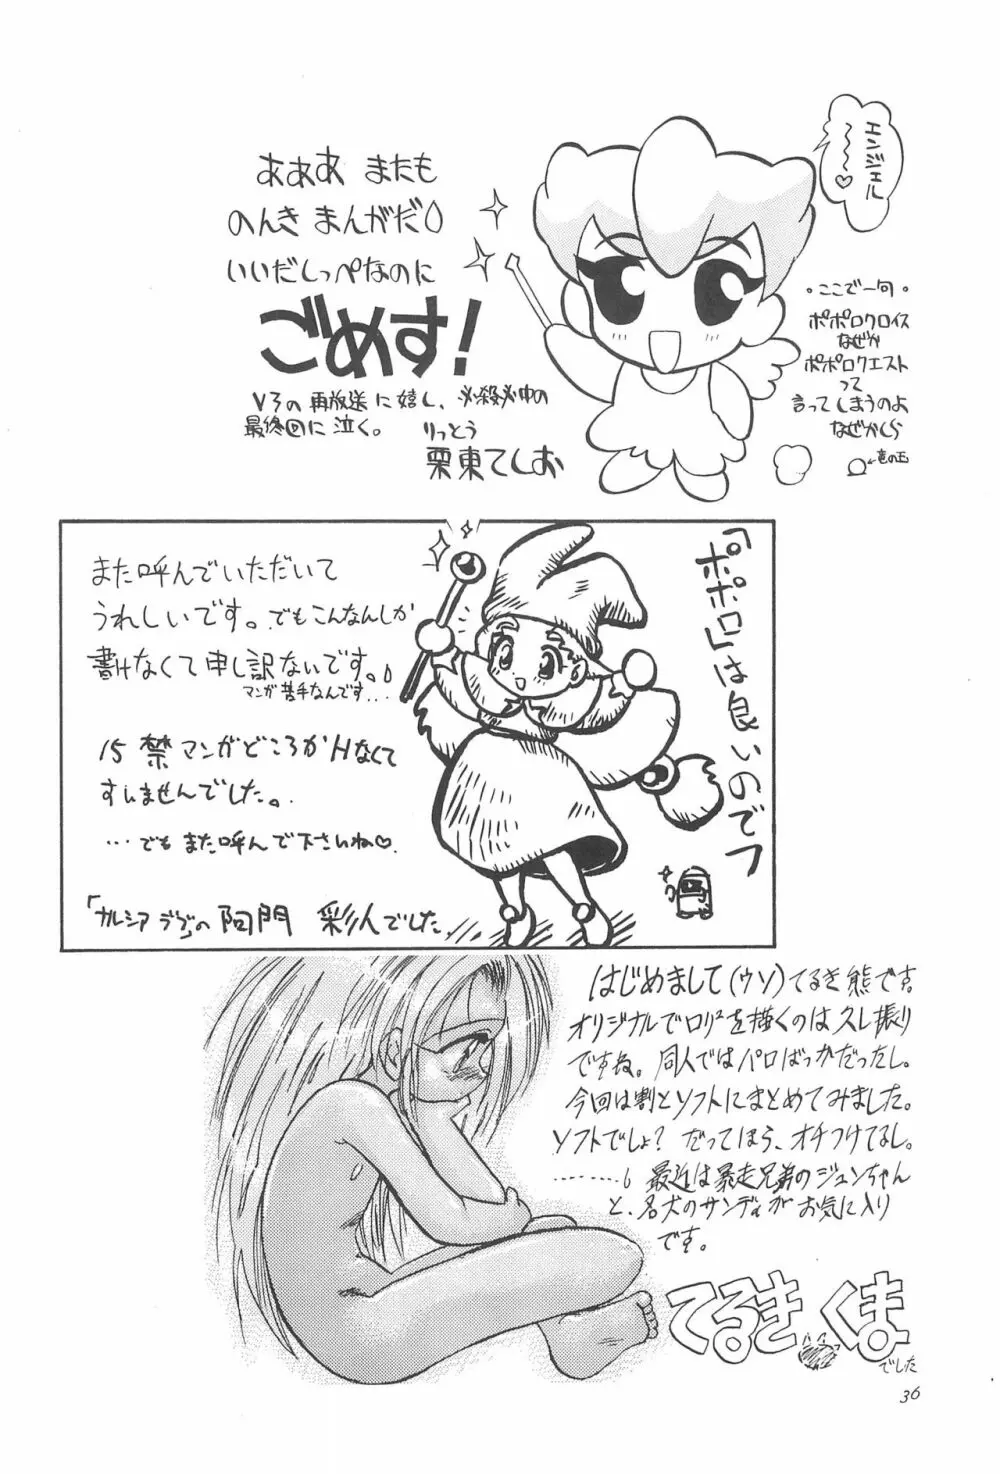 あああ またも
のんき まんがだ
いいだしっぺなのに
ごめす!
V3の 再放送 に 嬉し、必殺必中の
最終回に 泣く。
りっとう
栗東てしお
エンジェル
〜〜〜〜♡
・ここで一句・
ポポロクロイス
なぜか
ポポロクエスト
って
言ってしまうのよ
なぜかしら
←竜の玉
また呼んでいただいて
うれしいです。でもこんなんしか
書けなくて申し訳ないです。
マンガ苦手なんです...
15禁マンガどころかHなくて
すいませんでした。
...でも また呼んで下さいね♡.
「ガルシア ラヴ」の 阿門 彩人でした.
「ポポロ」は良いのでつ
はじめまして(ウソ)てるき熊です。
オリジナルでロリを描くのは久し振り
ですね。同人ではパロばっかだったし。
今回は割とソフトにまとめてみました。
ソフトでしょ? だってほら、オチつけてるし。
最近は暴走兄弟のジュンちゃん
と、名犬のサンディがお気に入り
です。
てるき くま
でした
36